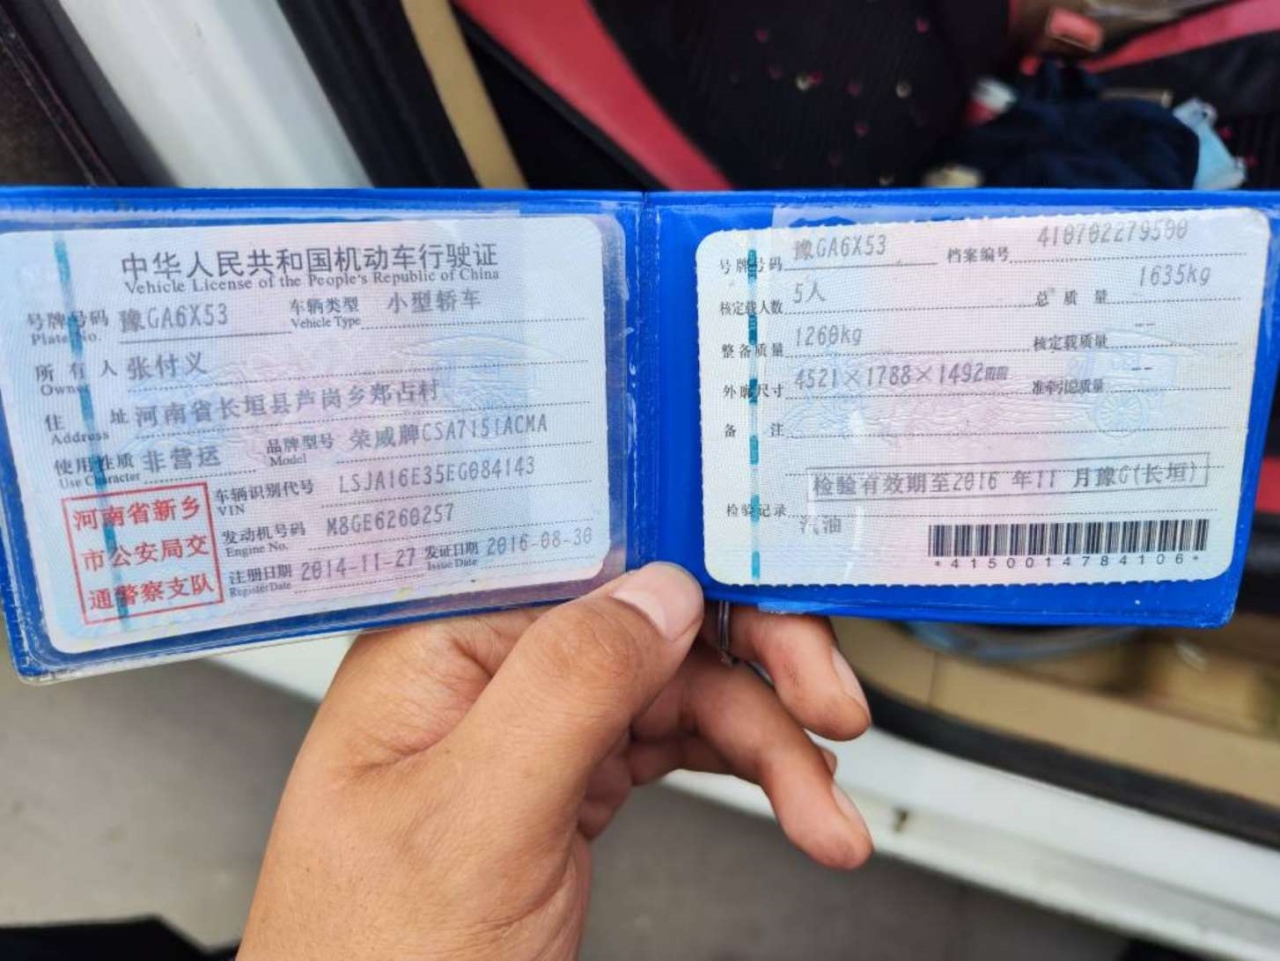 中华人民共和国机动车行驶证
Vehicle License of the People's Republic of China
号牌号码 豫GA6X53 车辆类型 小型轿车
Plate No. Vehicle Type
所有人 张付义
Owner
住址 河南省长垣县芦岗乡郑占村
Address
使用性质 非营运 品牌型号 荣威牌CSA7151ACMA
Use Character Model
车辆识别代号 LSJA16E35EG084143
VIN
发动机号码 M8GE6260257
Engine No.
注册日期 2014-11-27 发证日期 2016-08-30
Register Date Issue Date
河南省新乡
市公安局交
通警察支队
号牌号码 豫GA6X53 档案编号 410702279500
核定载人数 5人 总质量 1635kg
整备质量 1260kg 核定载质量 --
外廓尺寸 4521×1788×1492 准牵引总质量 --
备注
检验有效期至2016 年11 月豫G(长垣)
检验记录
汽油
*4150014784106*